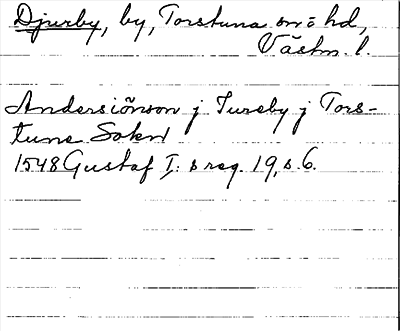 Djurby, by, Torstuna sn o hd,
Västm. l.
Anders iönson j Jureby j Tors-
tuna Sokn
1548 Gustaf I: s reg. 19, s. 6.